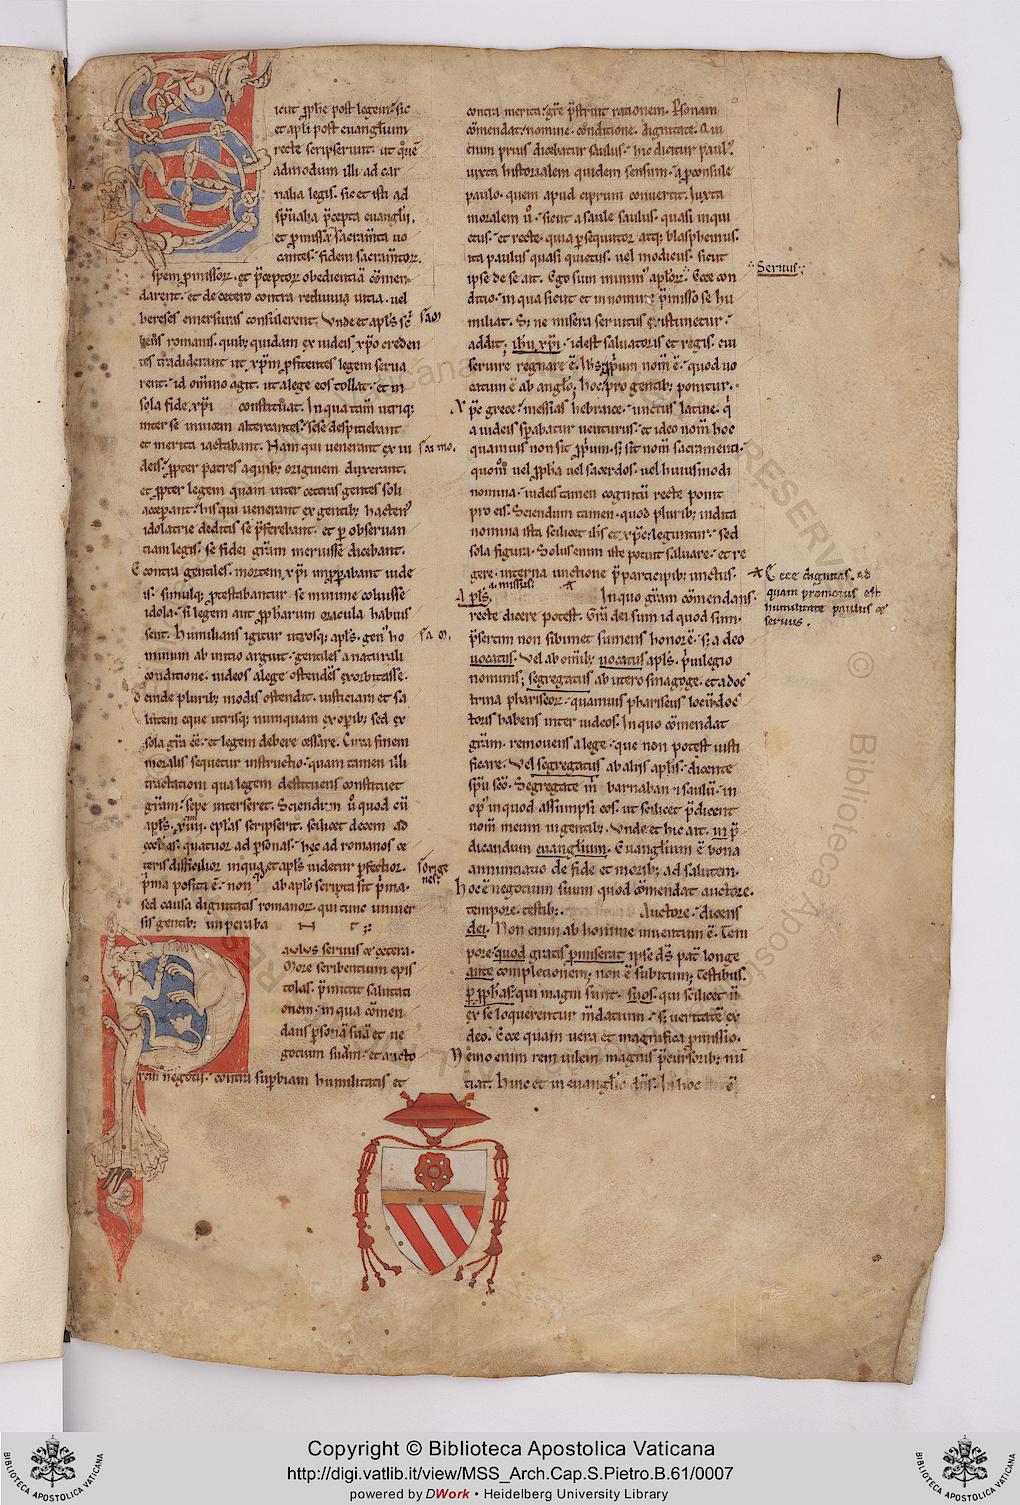 icut ꝓphe post legem. sic
et apli post euangelium
recte scripserunt. ut quē
admodum illi ad car
nalia legis. sic et isti ad
spūalia p̄cepta euanglii,
et ꝓmissa sacram̄ta uo
cantes. fidem sacram̄tor.
spem ꝓmissor. et p̄ceptor obedientiā cōmen
darent. et de cetero contra rediuiua uitia. uel
hereses emersuras consulerent. Vnde et apls sc̄
bens romanis. quib; quidam ex iudeis xp̄o creden
tes tradiderant ut xp̄m ꝓfitentes legem serua
rent. id om̄ino agit. ut a lege eos tollat. et in
sola fide xp̄i constituat. In qua tam̄ utriq;
inter se inuicem altercantes. sese despiciebant
et merita iactabant. Nam qui uenerant ex iu
deis. ꝓpter patres a quib; originem duxerant.
et ꝓpter legem quam inter ceteras gentes soli
acceperant. his qui uenerant ex gentib; hacten᷒
idolatrie deditis se p̄ferebant. et ꝑ obseruan
tiam legis. se fidei grām meruisse dicebant.
E contra gentiles. mortem xp̄i inꝓꝑabant iude
is. simulq; ꝓtestabantur se minime coluisse
idola. si legem aut ꝓpharum oracula habuis
sent. Humilians igitur utrosq; apls. gen᷒ ho
minum ab initio arguit. gentiles a naturali
conditione. iudeos a lege ostendēs exorbitasse.
deinde plurib; modis ostendit. iusticiam et sa
lutem eque utrisq; nunquam ex oꝑib; sed ex
sola grā eē. et legem debere cessare. Circa finem
moralis sequetur instructio. quam tamen illi
tractationi qua legem destituens constituet
grām. sepe interseret. Sciendum u̅ quod cū
apls .xiiii. eplas scripserit. scilicet decem ad
ecclias. quatuor ad ꝑsonas. hec ad romanos ce
teris difficilior in qua et apls uidetur ꝑfectior.
p̄ma posita ē. non qđ ab aplo scripta sit p̄ma.
sed causa dignitatis romanor. qui tunc uniuer
sis gentib; imperaba N T
aulus seruus et cetera.
More scribentium epis
tolas. p̄mittit salutati
onem. in qua cōmen
dans ꝑsonā suā et ne
gotium suum. et aucto
rem negotii. contra suꝑbiam humilitatis et
contra merita. grē p̄struit rationem. Ꝑsonam
cōmendat. nomine. conditione. dignitate. Qui
enim prius dicebatur saulus. hic dicitur paul᷒.
iuxta historialem quidem sensum. a ꝓconsule
paulo. quem apud ciprum conuertit. Iuxta
moralem u̅. sicut a saule saulus. quasi inqui
etus. et recte. quia ꝑsequutor atq; blasphemus.
ita paulus quasi quietus. uel modicus. sicut
ipse de se ait. Ego sum minim᷒ aplor. Ecce con
ditio. in qua sicut et in nomine p̄misso se hu
miliat. Sz ne misera seruitus existimetur.
addit; ihu xp̄i. idest saluatoris et regis. cui
seruire regnare ē. Ihs ꝓprium nom̄ ē. quod uo
catum ē ab anglo; hoc ꝓ gentib; ponitur.
Xpc grece. messias hebraice. unctus latine. q̇
a iudeis sꝑabatur uenturus. et ideo nom̄ hoc
quamuis non sit ꝓprium. sz sit nom̄ sacramenti.
quom̊ uel ꝓpha uel sacerdos. uel huiusmodi
nomina. iudeis tamen cognitū recte ponit
pro eis. Sciendum tamen. quod plurib; indita
nomina ista scilicet ihs et xpc leguntur. sed
sola figura. Solus enim iste potuit saluare. et re
gere. interna unctione p̄ participib; unctus.
Apls. In quo grām cōmendans.
recte dicere potest. Grā dei sum id quod sum.
p̄sertim non sibimet sumens honorē. sz a deo
uocatus. Vel ab omīb; uocatus apls. p̄uilegio
nominis; segregatus ab utero sinagoge. et a doc
trina phariseor. quamuis phariseus locum doc
toris habens inter iudeos. In quo cōmendat
grām. remouens a lege. que non potest iusti
ficare. Vel segregatus ab aliis aplis. dicente
spū scō. Segregate m̄ barnaban et saulū. in
op᷒ in quod assumpsi eos. ut scilicet p̄dicent
nom̄ meum in gentib;. Vnde et hic ait. in p̄
dicandum euanglium. Euanglium ē bona
annuntiatio de fide et morib; ad salutem.
hoc ē negotium suum quod cōmendat auctore.
tempore. testib;. Auctore. dicens
dei. Non enim ab homine inuentum ē. Tem
pore. quod gratis ꝓmiserat ipse ds pat̄ longe
ante completionem; non ē subitum; Testibus.
ꝑ ꝓphas. qui magni sunt. suos. qui scilicet n̄
ex se loquerentur mendatium. sz ueritatē ex
deo. Ecce quam uera et magnifica ꝓmissio.
Nemo enim rem uilem magnis p̄cursorib; nū
tiat. Hinc et in euanglio dn̄s. In hoc ē
Seruus
Ecce dignitas. ad
quam promotus est
humilitate paulus et
seruus.
a. missus.
orige
nes
I
RESERV
© Biblioteca Apost
Copyright © Biblioteca Apostolica Vaticana
http://digi.vatlib.it/view/MSS_Arch.Cap.S.Pietro.B.61/0007
powered by DWork • Heidelberg University Library
BIBLIOTECA APOSTOLICA VATICANA
BIBLIOTECA APOSTOLICA VATICANA